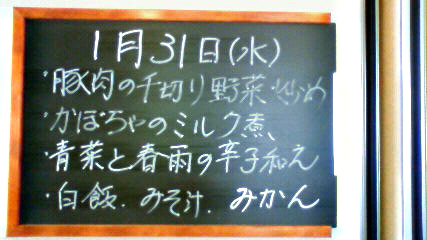 1月31日(水)
・豚肉の千切り野菜炒め
・かぼちゃのミルク煮、
・青菜と春雨の辛子和え
・白飯．みそ汁．みかん